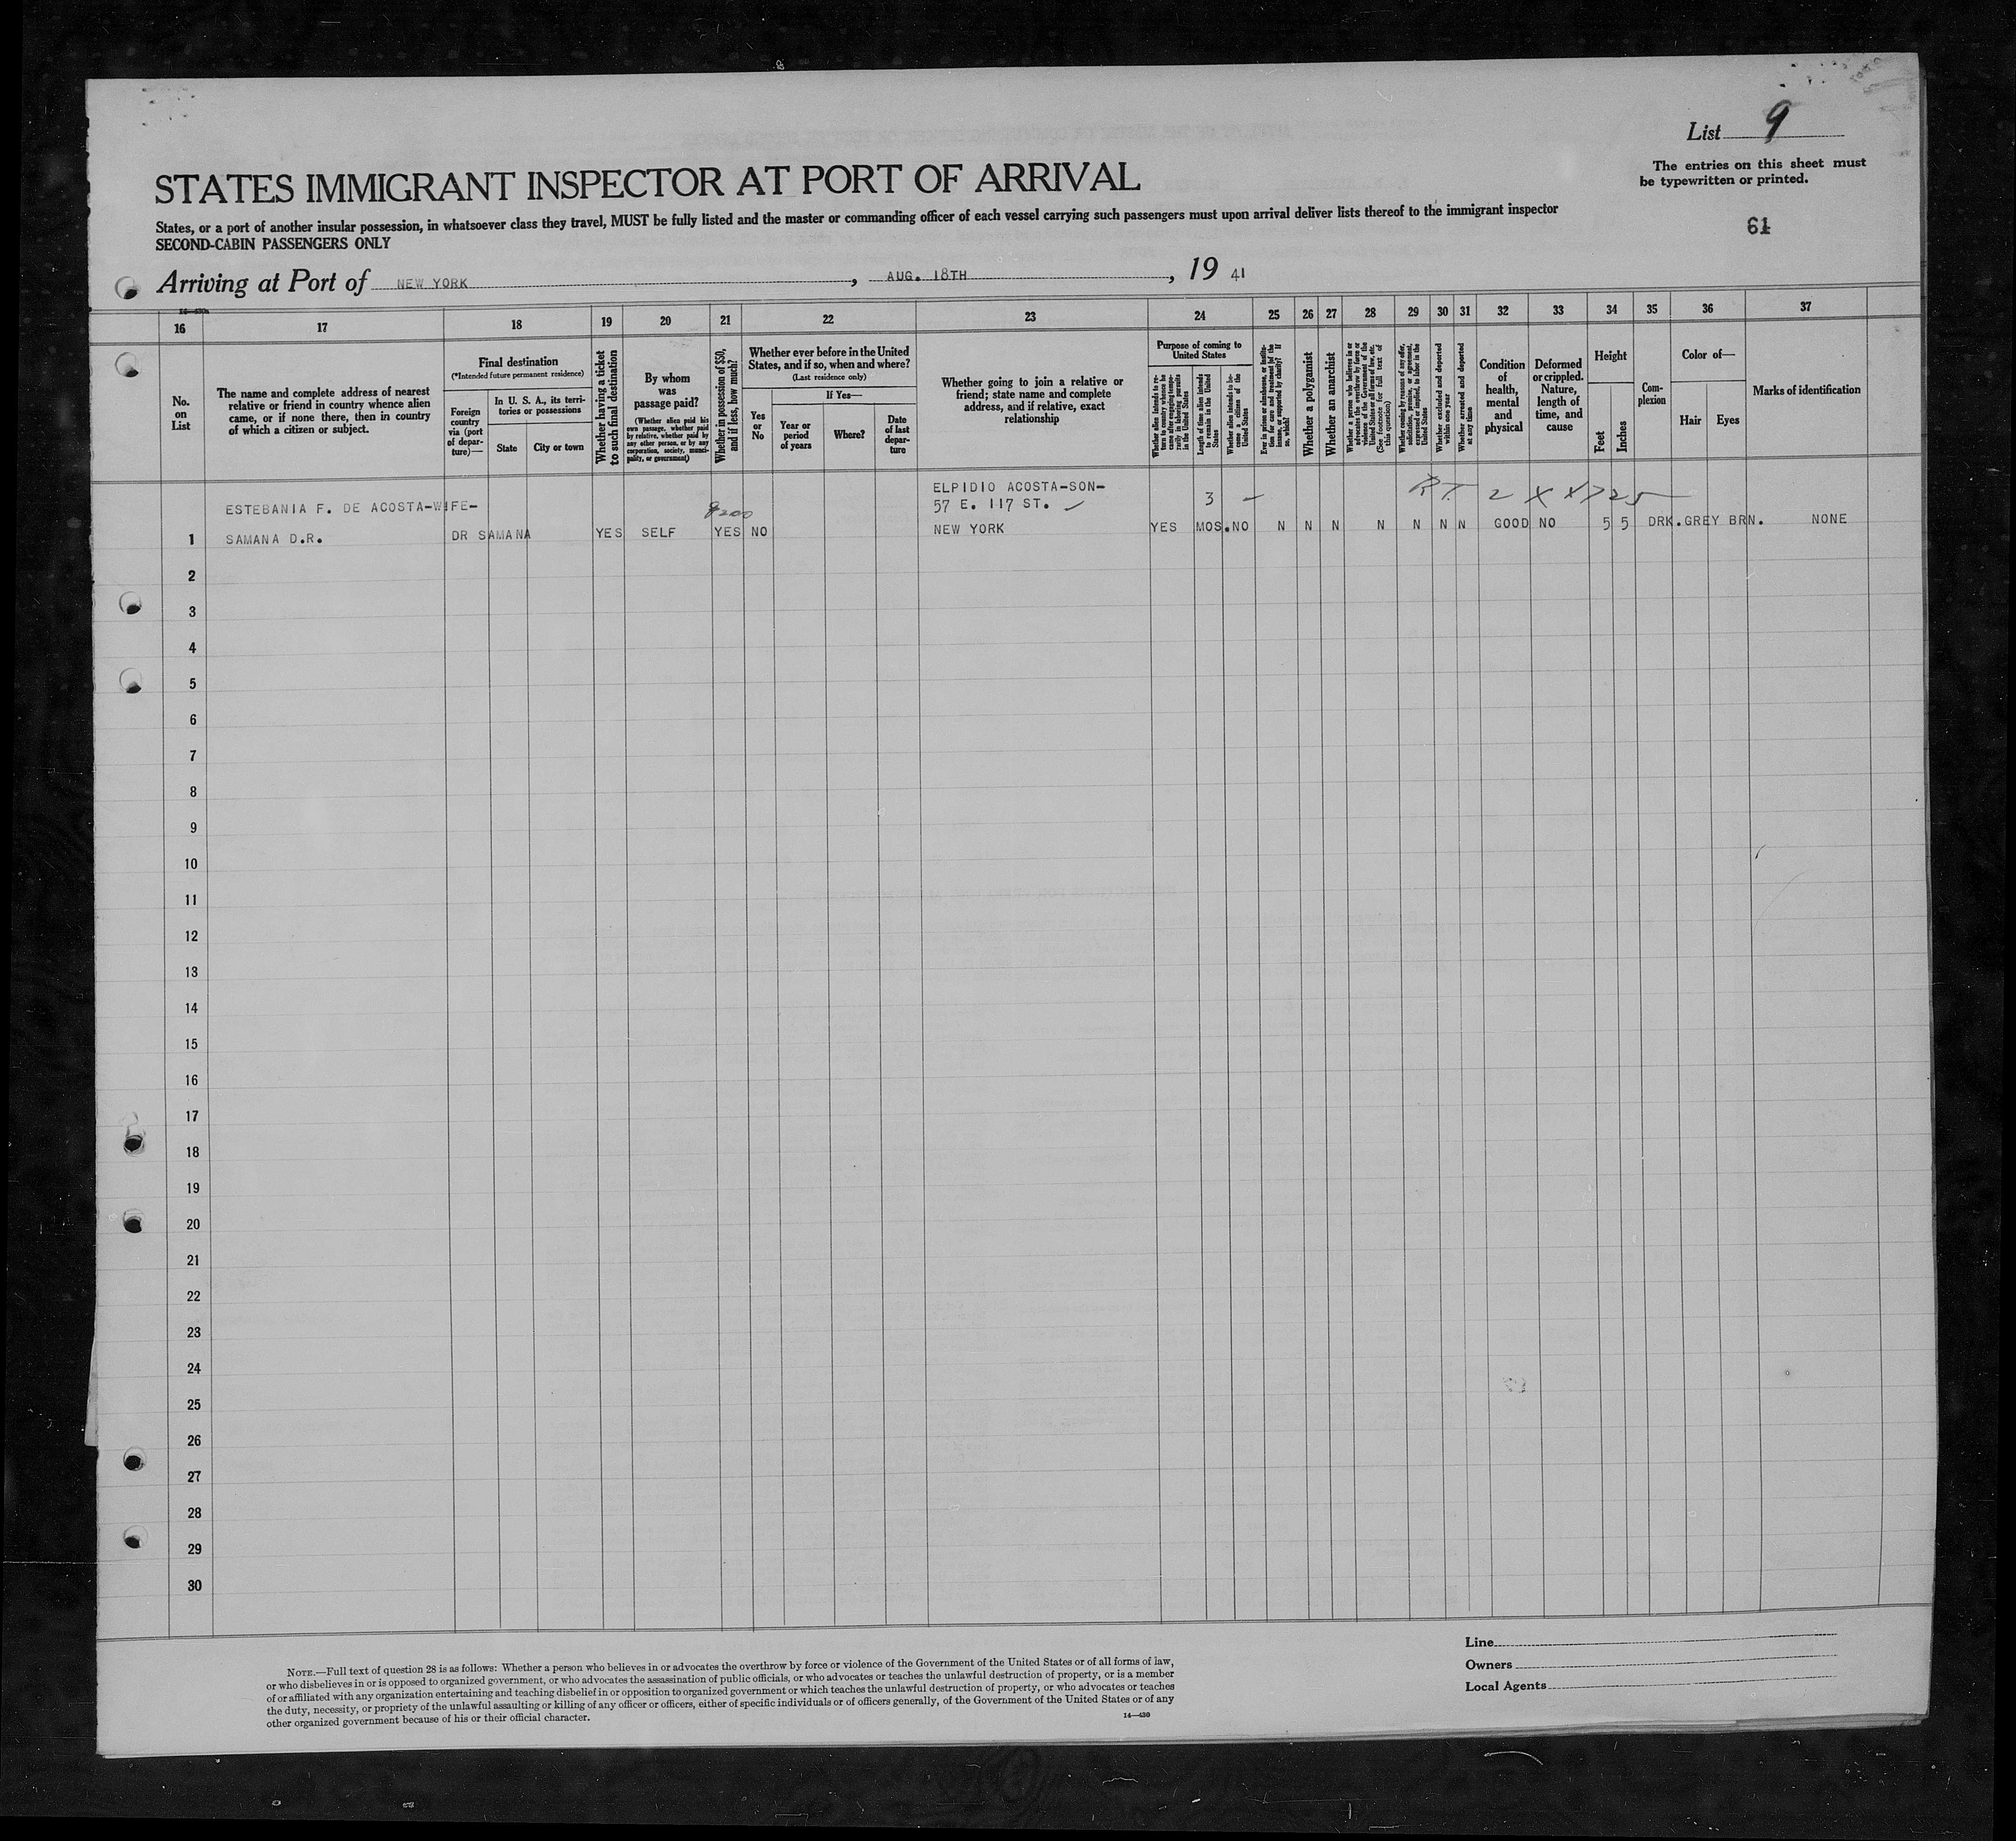 List 9
The entries on this sheet must
be typewritten or printed.
61
STATES IMMIGRANT INSPECTOR AT PORT OF ARRIVAL
States, or a port of another insular possession, in whatsoever class they travel, MUST be fully listed and the master or commanding officer of each vessel carrying such passengers must upon arrival deliver lists thereof to the immigrant inspector
SECOND-CABIN PASSENGERS ONLY
Arriving at Port of NEW YORK, AUG. 18TH, 19 41
16 17 18 19 20 21 22 23 24 25 26 27 28 29 30 31 32 33 34 35 36 37
No.
on
List
The name and complete address of nearest
relative or friend in country whence alien
came, or if none there, then in country
of which a citizen or subject.
Final destination
(*Intended future permanent residence)
Foreign
country
via (port
of depar-
ture)—
In U. S. A., its terri-
tories or possessions
State
City or town
Whether having a ticket
to such final destination
By whom
was
passage paid?
(Whether alien paid his
own passage, whether paid
by relative, whether paid by
any other person, or by any
corporation, society, munici-
pality, or government)
Whether in possession of $50,
and if less, how much?
Whether ever before in the United
States, and if so, when and where?
(Last residence only)
Yes
or
No
If Yes—
Year or
period
of years
Where?
Date
of last
depar-
ture
Whether going to join a relative or
friend; state name and complete
address, and if relative, exact
relationship
Purpose of coming to
United States
Whether alien intends to re-
turn to country whence he
came after engaging tempo-
rarily in laboring pursuits
in the United States
Length of time alien intends
to remain in the United
States
Whether alien intends to be-
come a citizen of the
United States
Ever in prison or almshouse, or institu-
tion for care and treatment of the
insane, or supported by charity? If
so, which?
Whether a polygamist
Whether an anarchist
Whether a person who believes in or
advocates the overthrow by force or
violence of the Government of the
United States or all forms of law, etc.
(See footnote for full text of
this question)
Whether coming by reason of any offer,
solicitation, promise, or agreement,
expressed or implied, to labor in the
United States
Whether excluded and deported
within one year
Whether arrested and deported
at any time
Condition
of
health,
mental
and
physical
Deformed
or crippled.
Nature,
length of
time, and
cause
Height
Feet
Inches
Com-
plexion
Color of—
Hair
Eyes
Marks of identification
ELPIDIO ACOSTA-SON-
ESTEBANIA F. DE ACOSTA-WIFE- 57 E. 117 ST. 3 –
1 SAMANA D.R. DR SAMANA YES SELF YES NO NEW YORK YES MOS. NO N N N N N N N GOOD NO 5 5 DRK. GREY BRN. NONE
2
3
4
5
6
7
8
9
10
11
12
13
14
15
16
17
18
19
20
21
22
23
24
25
26
27
28
29
30
NOTE.—Full text of question 28 is as follows: Whether a person who believes in or advocates the overthrow by force or violence of the Government of the United States or of all forms of law,
or who disbelieves in or is opposed to organized government, or who advocates the assassination of public officials, or who advocates or teaches the unlawful destruction of property, or is a member
of or affiliated with any organization entertaining and teaching disbelief in or opposition to organized government or which teaches the unlawful destruction of property, or who advocates or teaches
the duty, necessity, or propriety of the unlawful assaulting or killing of any officer or officers, either of specific individuals or of officers generally, of the Government of the United States or of any
other organized government because of his or their official character.
14—430
Line
Owners
Local Agents